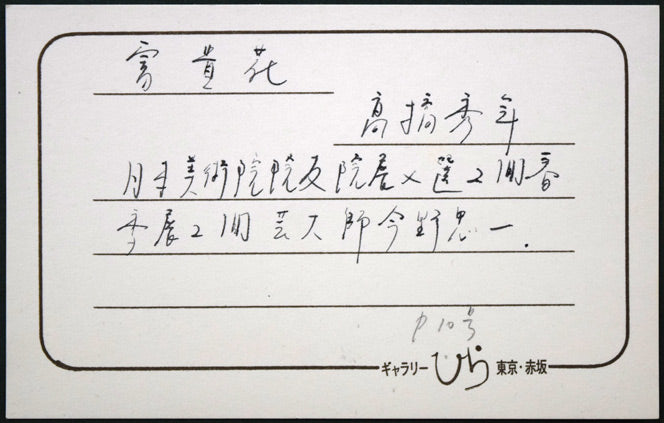 富貴花
高橋秀年
日本美術院院友院展入選2回春
季展2回芸大師今野忠一.
P10号
ギャラリー ひら 東京・赤坂